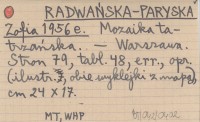 RADWAŃSKA-PARYSKA
Zofia 1956 e. Mozaika ta-
trzańska. — Warszawa.
Stron 79, tabl. 48, err., opr.
(ilustr., obie wyklejki z mapą)
cm 24 × 17.
MT, WHP